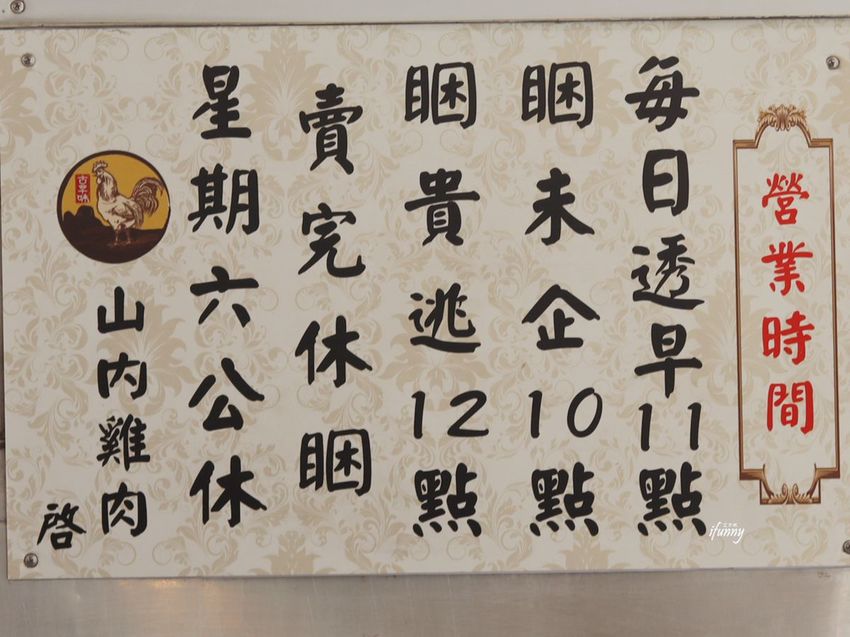 營業時間
每日透早11點
睏未企10點
睏貴逃12點
賣完休睏
星期六公休
古早味
山內雞肉
啓
ifunny